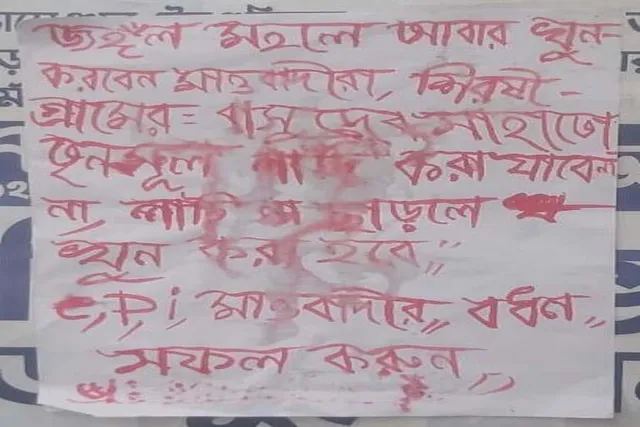 জঙ্গল মহলে আবার খুন-
করবেন মাওবাদীরা, শিরষী-
গ্রামের= বাসুদেব মাহাতো
তৃনমূল পার্টি করা যাবেনা
না, পার্টি না ছাড়লে
খুন করা হবে,,
c, p, i, মাওবাদীর,, বধন,,
সফল করুন,,